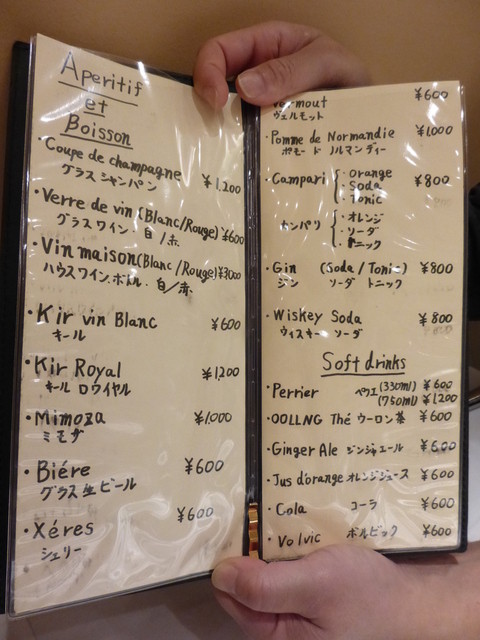 Aperitif
et
Boisson
・Coupe de champagne ¥1,200
グラス シャンパン
・Verre de vin (Blanc/Rouge) ¥600
グラス ワイン 白/赤
・Vin maison (Blanc/Rouge) ¥3000
ハウスワイン. ボトル. 白/赤
・Kir vin Blanc ¥600
キール
・Kir Royal ¥1,200
キール ロワイヤル
・Mimoza ¥1,000
ミモザ
・Biére ¥600
グラス 生ビール
・Xéres ¥600
シェリー
¥600
ヴェルモット
・Pomme de Normandie ¥1,000
ポモー ド ノルマンディー
・Campari { ・Orange ¥800
・Soda
・Tonic
カンパリ { ・オレンジ
・ソーダ
・トニック
・Gin (Soda / Tonic) ¥800
ジン ソーダ トニック
・Wiskey Soda ¥800
ウィスキー ソーダ
Soft drinks
・Perrier ペリエ (330ml) ¥600
(750ml) ¥1,200
・OOLLNG Thé ウーロン茶 ¥600
・Ginger Ale ジンジャエール ¥600
・Jus d'orange オレンジジュース ¥600
・Cola コーラ ¥600
・Volvic ボルビック ¥600